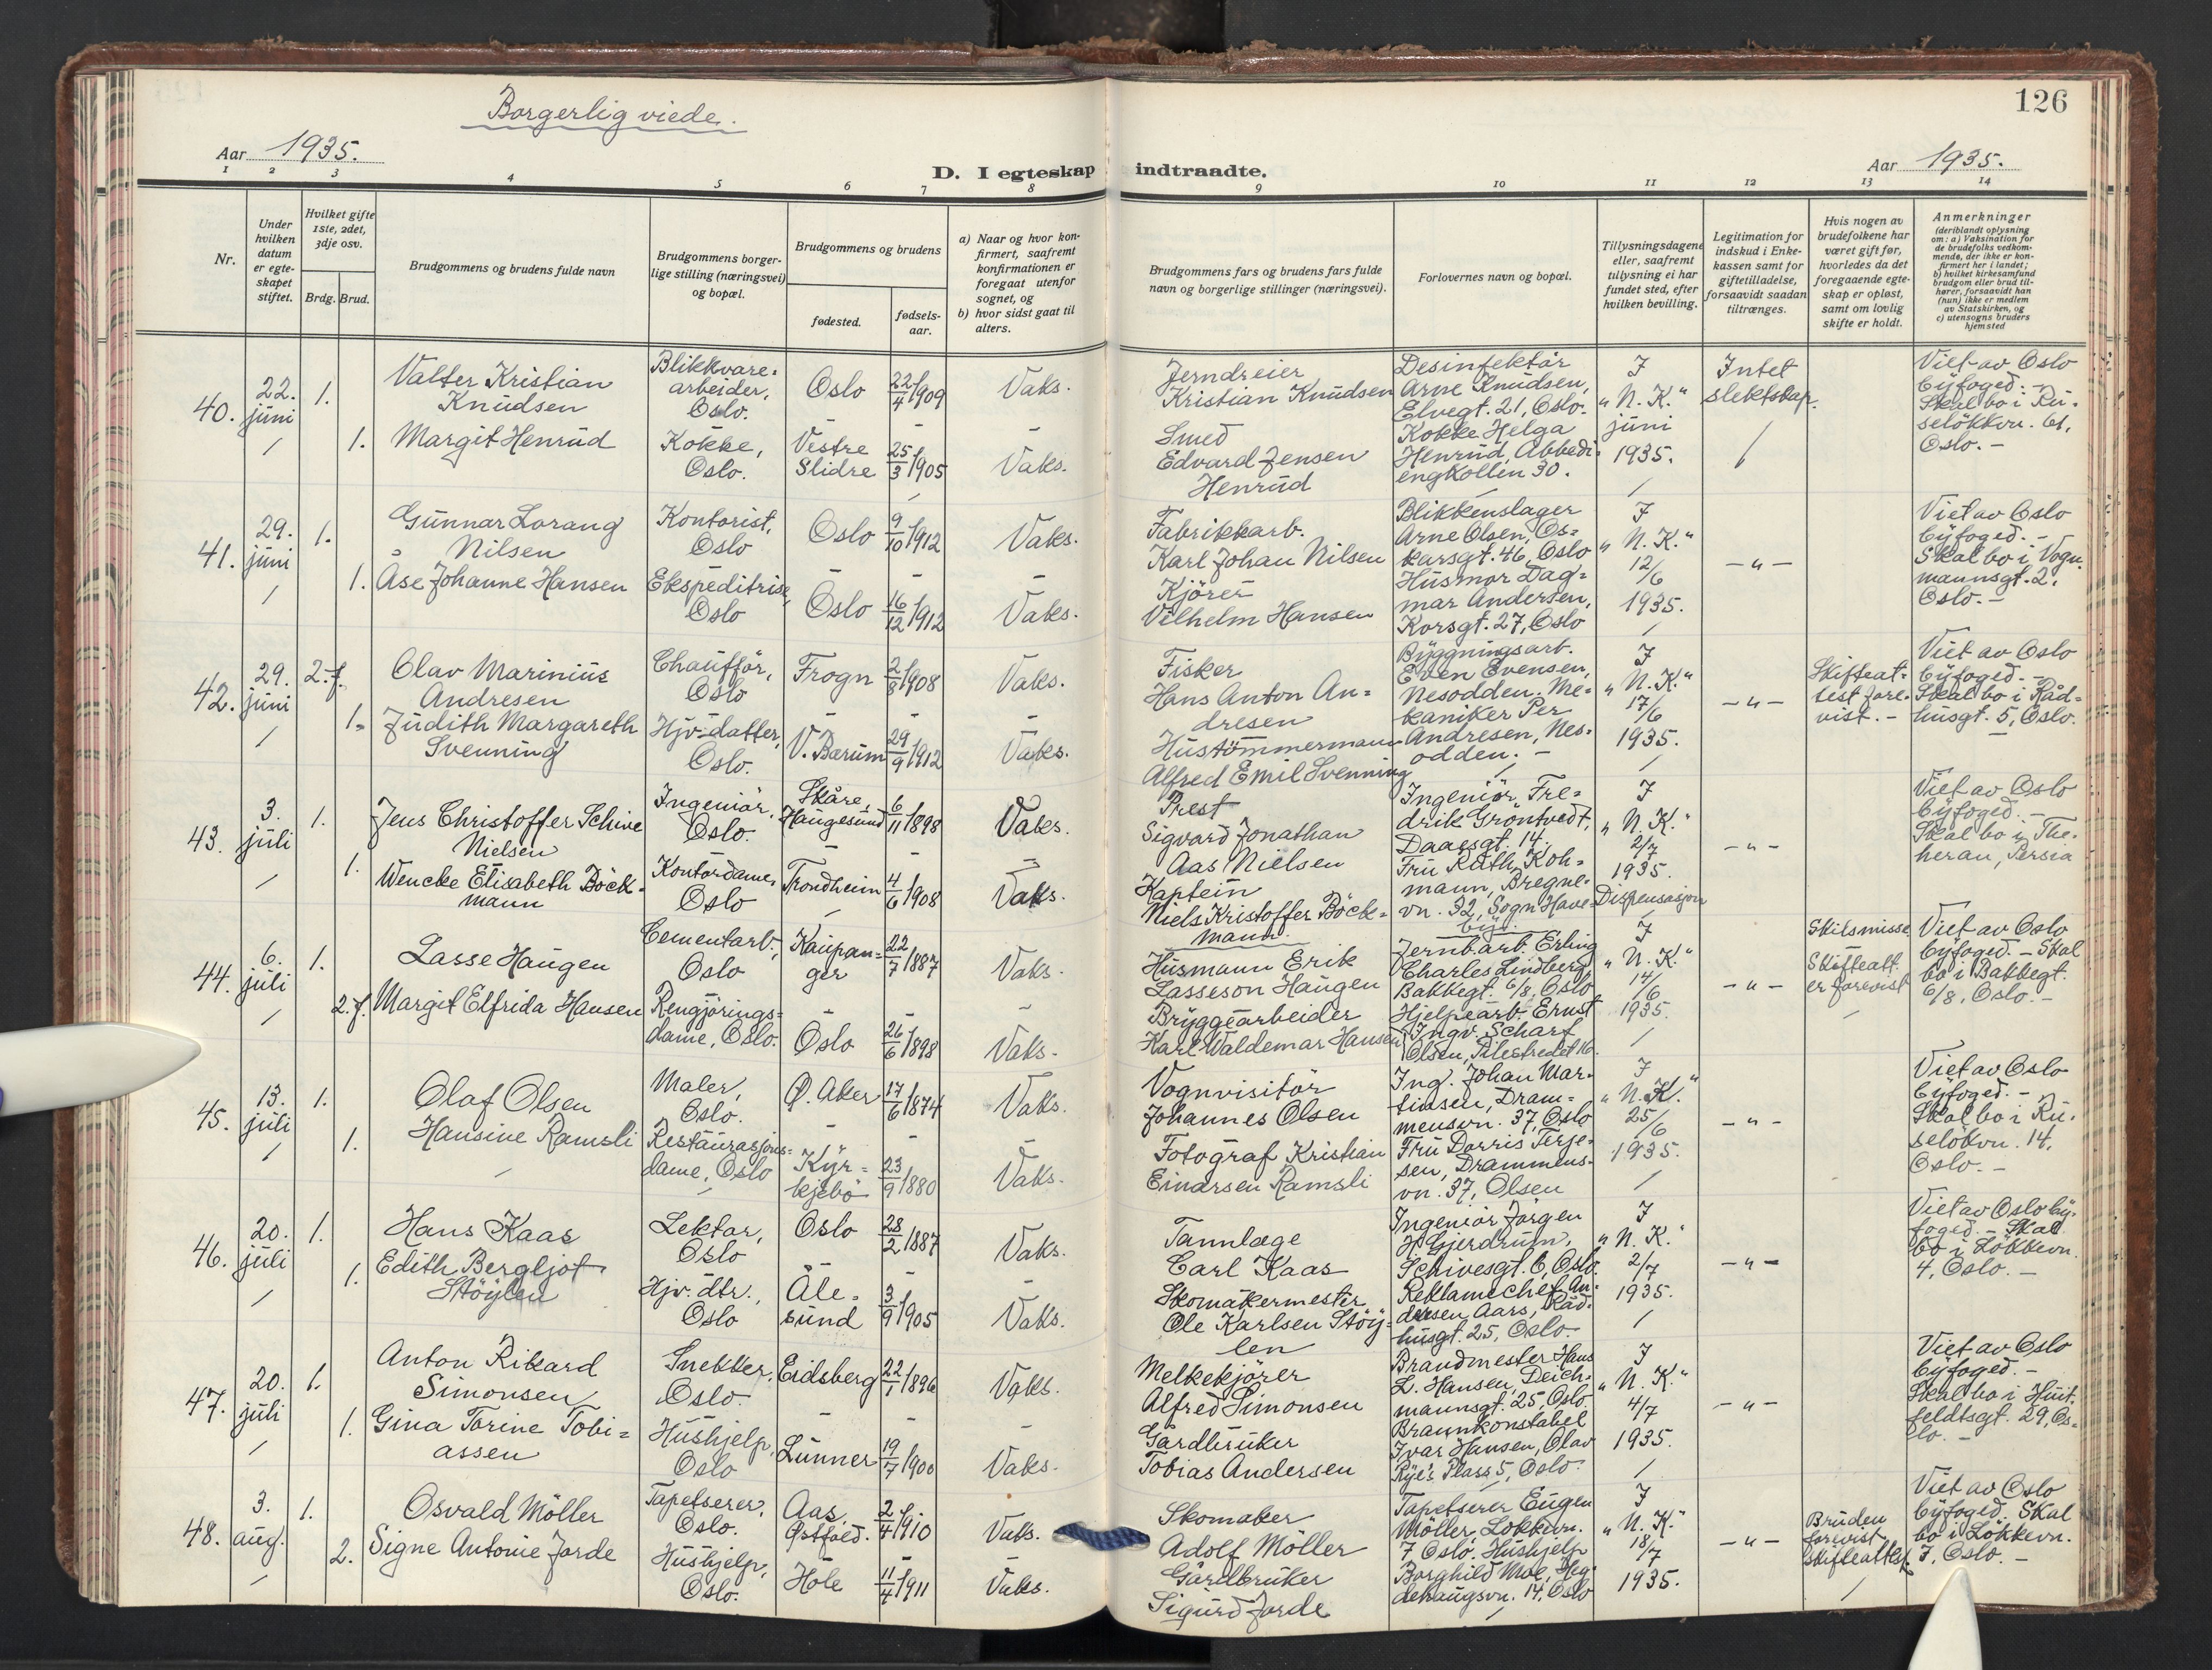 126
Borgerlig viede.
Aar 1935.
D. I egteskap indtraadte.
Aar 1935.
1 2 3 4 5 6 7 8 9 10 11 12 13 14
Nr.
Under
hvilken
datum
er egte-
skapet
stiftet.
Hvilket gifte
1ste, 2det,
3dje osv.
Brdg. Brud.
Brudgommens og brudens fulde navn
Brudgommens borger-
lige stilling (næringsvei)
og bopæl.
Brudgommens og brudens
fødested.
fødsels-
aar.
a) Naar og hvor kon-
firmert, saafremt
konfirmationen er
foregaat utenfor
sognet, og
b) hvor sidst gaat til
alters.
Brudgommens fars og brudens fars fulde
navn og borgerlige stillinger (næringsvei).
Forlovernes navn og bopæl.
Tillysningsdagene
eller, saafremt
tillysning ei har
fundet sted, efter
hvilken bevilling.
Legitimation for
indskud i Enke-
kassen samt for
giftetilladelse,
forsaavidt saadan
tiltrænges.
Hvis nogen av
brudefolkene har
været gift før,
hvorledes da det
foregaaende egte-
skap er opløst,
samt om lovlig
skifte er holdt.
Anmerkninger
(deriblandt oplysning
om: a) Vaksination for
de brudefolks vedkom-
mende, der ikke er kon-
firmert her i landet;
b) hvilket kirkesamfund
brudgom eller brud til-
hører, forsaavidt han
(hun) ikke er medlem
av Statskirken, og
c) utensogns bruders
hjemsted
40.
22.
juni
1.
Valter Kristian
Knudsen
Blikkvare-
arbeider,
Oslo.
Oslo
22/4 1909
Vaks.
Jerndreier
Kristian Knudsen
Desinfektør
Arne Knudsen,
Elvegt. 21, Oslo.
I
„N. K."
juni
1935.
Intet
slektskap.
Viet av Oslo
byfoged. -
Skal bo i Ru-
seløkkvn. 61,
Oslo. -
1.
Margit Henrud
Kokke,
Oslo.
Vestre
Slidre
25/3 1905
Vaks.
Smed
Edvard Jensen
Henrud
Kokke Helga
Henrud, Abbedi-
engkollen 30.
41.
29.
juni
1.
Gunnar Lorang
Nilsen
Kontorist,
Oslo
Oslo
9/10 1912
Vaks.
Fabrikkarb.
Karl Johan Nilsen
Blikkenslager
Arne Olsen, Os-
karsgt. 46, Oslo
I
„N. K."
12/6
1935.
- " -
Viet av Oslo
byfoged. -
Skal bo i Vogn-
mannsgt. 2,
Oslo. -
1.
Åse Johanne Hansen
Ekspeditrise,
Oslo
Oslo
16/12 1912
Vaks.
Kjører
Vilhelm Hansen
Husmor Dag-
mar Andersen,
Korsgt. 27, Oslo
42.
29.
juni
2. f.
Olav Marinius
Andresen
Chauffør,
Oslo
Frogn
2/8 1908
Vaks.
Fisker
Hans Anton An-
dresen
Byggningsarb.
Even Evensen,
Nesodden. Me-
kaniker Per
Andresen, Nes-
odden. -
I
„N. K."
17/6
1935.
- " -
Skifteat-
test fore-
vist. -
Viet av Oslo
byfoged. -
Skal bo i Råd-
husgt. 5, Oslo.
1.
Judith Margareth
Svenning
Hjv. datter,
Oslo.
V. Bærum
29/9 1912
Vaks.
Hustømmermann
Alfred Emil Svenning
43.
3.
juli
1.
Jens Christoffer Schive
Nielsen
Ingeniør,
Oslo.
Skåre,
Haugesund
6/11 1898
Vaks.
Prest
Sigvard Jonathan
Aas Nielsen
Ingeniør Fre-
drik Grøntvedt,
Daaesgt. 14.
I
„N. K."
2/7
1935.
Dispensasjon
- " -
Viet av Oslo
byfoged. -
Skal bo i The-
heran, Persia
1.
Wencke Elisabeth Böck-
mann
Kontordame,
Oslo
Trondheim
4/6 1908
Vaks.
Kaptein
Niels Kristoffer Böck-
mann.
Fru Ruth Koh-
mann, Bregne-
vn. 32, Sogn Have-
by.
44.
6.
juli
1.
Lasse Haugen
Cementarb.,
Oslo
Kaupan-
ger
22/7 1887
Vaks.
Husmann Erik
Lasseson Haugen
Jernbarb. Erling
Charles Lindberg
Bakkegt. 6/8, Oslo
I
„N. K."
14/6
1935.
- " -
Skilsmisse
Skifteatt.
er forevist
Viet av Oslo
byfoged. - Skal
bo i Bakkegt.
6/8, Oslo. -
2. f.
Margit Elfrida Hansen
Rengjørings-
dame, Oslo.
Oslo
26/6 1898
Vaks.
Bryggearbeider
Karl Waldemar Hansen
Hjelpearb. Ernst
Ingv. Scharf
Olsen, Pilestredet 16.
45.
13.
juli
1.
Olaf Olsen
Maler,
Oslo.
Ø. Aker
17/6 1874
Vaks.
Vognvisitør
Johannes Olsen
Ing. Johan Mar-
tinsen, Dram-
mensvn. 37, Oslo
I
„N. K."
25/6
1935.
- " -
Viet av Oslo
byfoged. -
Skal bo i Ru-
seløkvn. 14,
Oslo. -
1.
Hansine Ramsli
Restaurasjons-
dame, Oslo
Kyr-
kjebø
23/9 1880
Vaks.
Fotograf Kristian
Einarsen Ramsli
Fru Dorris Terje-
sen, Drammens-
vn. 37, Olsen
46.
20.
juli
1.
Hans Kaas
Lektor,
Oslo
Oslo
28/2 1887
Vaks.
Tannlæge
Carl Kaas
Ingeniør Jørgen
H. Gjerdrum,
Schivesgt. 6, Oslo.
I
„N. K."
2/7
1935.
- " -
Viet av Oslo by-
foged. - Skal
bo i Løkkevn.
4, Oslo. -
1.
Edith Bergljot
Støylen
Hjv. dtr.,
Oslo
Åle-
sund
3/9 1905
Vaks.
Skomakermester
Ole Karlsen Støy-
len
Reklamechef An-
dersen Aars, Råd-
husgt. 25, Oslo.
47.
20.
juli
1.
Anton Rikard
Simonsen
Snekker,
Oslo.
Eidsberg
22/1 1896
Vaks.
Melkekjører
Alfred Simonsen
Brandmester Hans
L. Hansen, Deich-
mannsgt. 25, Oslo.
I
„N. K."
4/7
1935.
- " -
Viet av Oslo
byfoged. -
Skal bo i Huit-
feldtsgt. 29, Os-
lo. -
1.
Gina Torine Tobi-
assen
Hushjelp,
Oslo
Lunner
19/7 1900
Vaks.
Gardbruker
Tobias Andersen
Brannkonstabel
Ivar Hansen, Olav
Rye's Plass 5, Oslo.
48.
3.
aug.
1.
Osvald Möller
Tapetserer,
Oslo.
Aas,
Østfold.
2/4 1910
Vaks.
Skomaker
Adolf Möller
Tapetserer Eugen
Möller, Løkkevn.
7 Oslo. Hushjelp
I
„N. K."
18/7
1935.
- " -
Bruden
forevist
skifteattest
Viet av Oslo
byfoged. Skal
bo i Løkkevn.
7, Oslo. -
2.
Signe Antonie Jorde
Hushjelp,
Oslo.
Hole
11/4 1911
Vaks.
Gårdbruker
Sigurd Jorde
Borghild Moe, Heg-
dehaugsvn. 14, Oslo